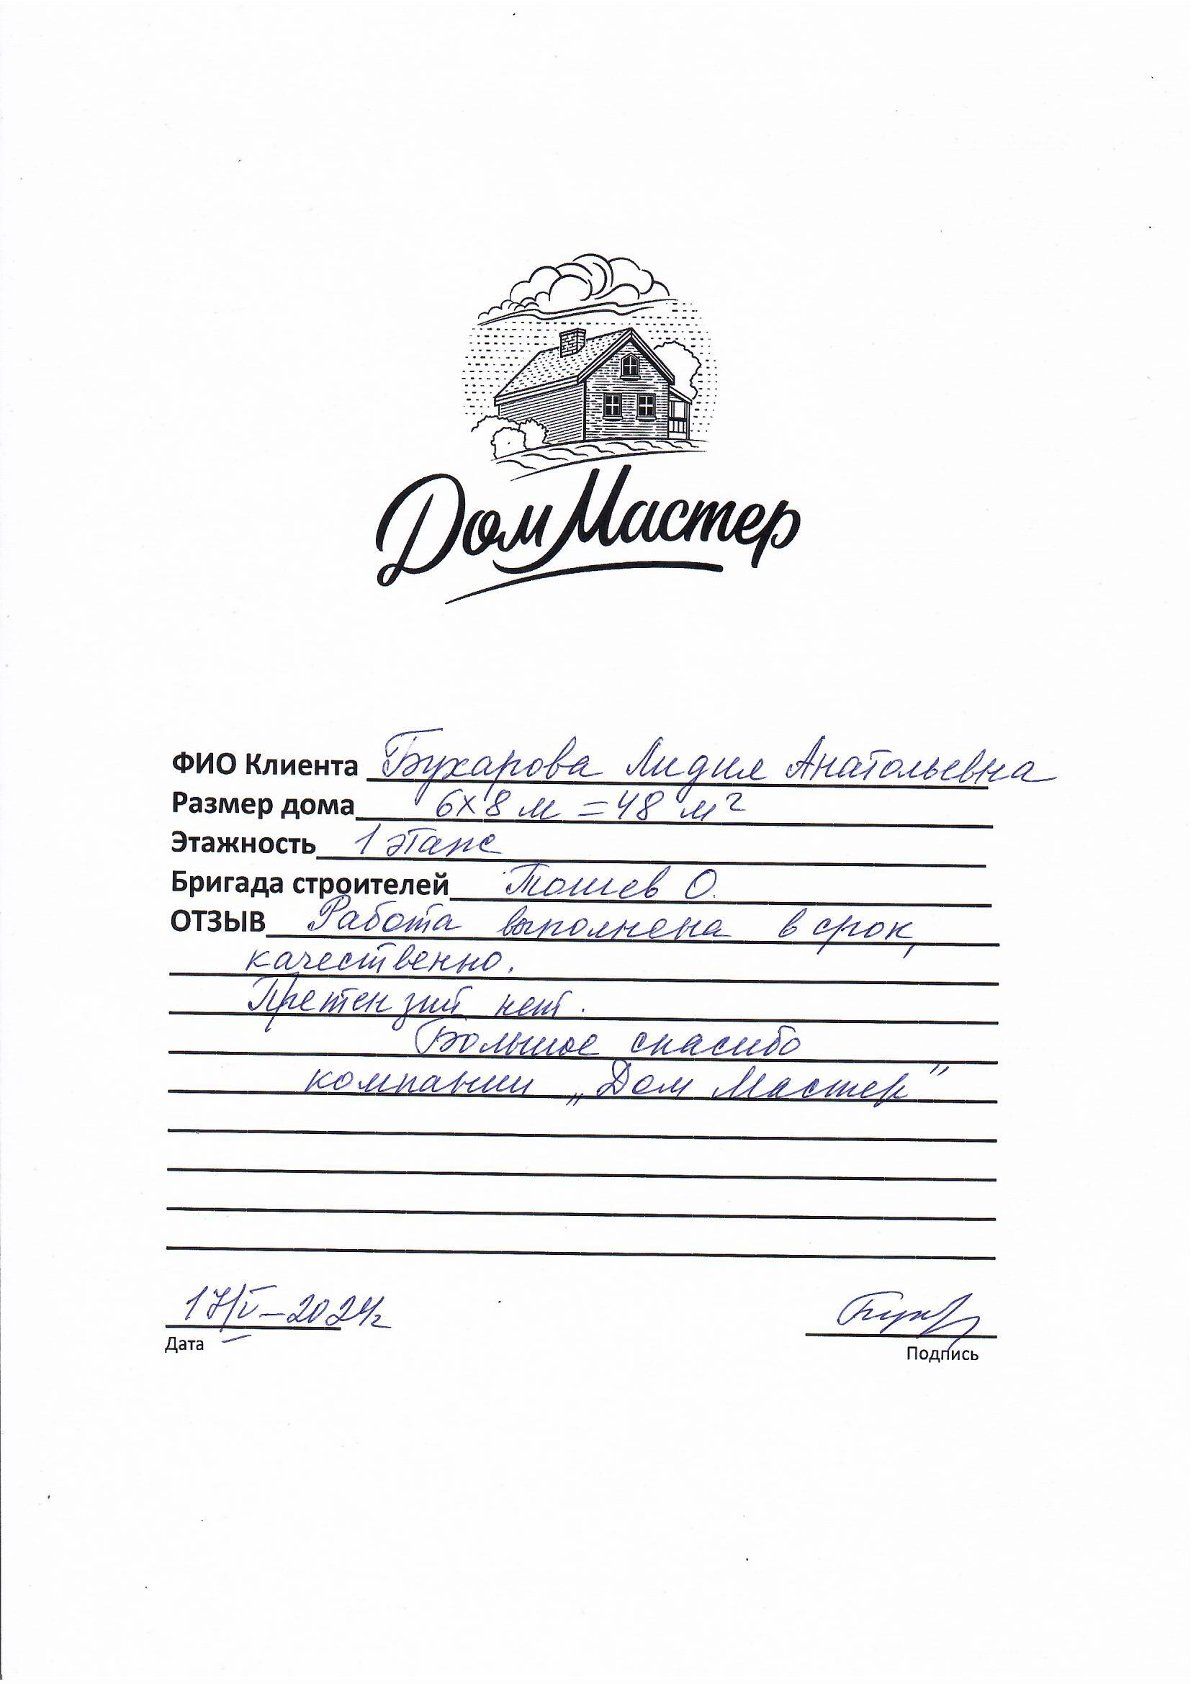 Дом Мастер
ФИО Клиента Бухарова Лидия Анатольевна
Размер дома 6х8 м = 48 м²
Этажность 1 этаж
Бригада строителей Тошев О.
ОТЗЫВ Работа выполнена в срок,
качественно.
Претензий нет.
Большое спасибо
компании „Дом Мастер"
17/V – 2024г
Дата
Подпись